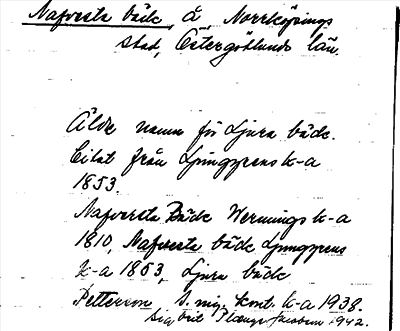 Nafvesta bäck, å, Norrköpings
stad, Östergötlands län.
Äldre namn för Ljura bäck.
Citat från Ljunggrens k-a
1853.
Nafversta Bäck Wernings k-a
1810, Nafvesta bäck Ljunggrens
k-a 1853, Ljura bäck
Petterson S. ning. kont. k-a 1938.
Sig brit Plænge Jacobson 1942.